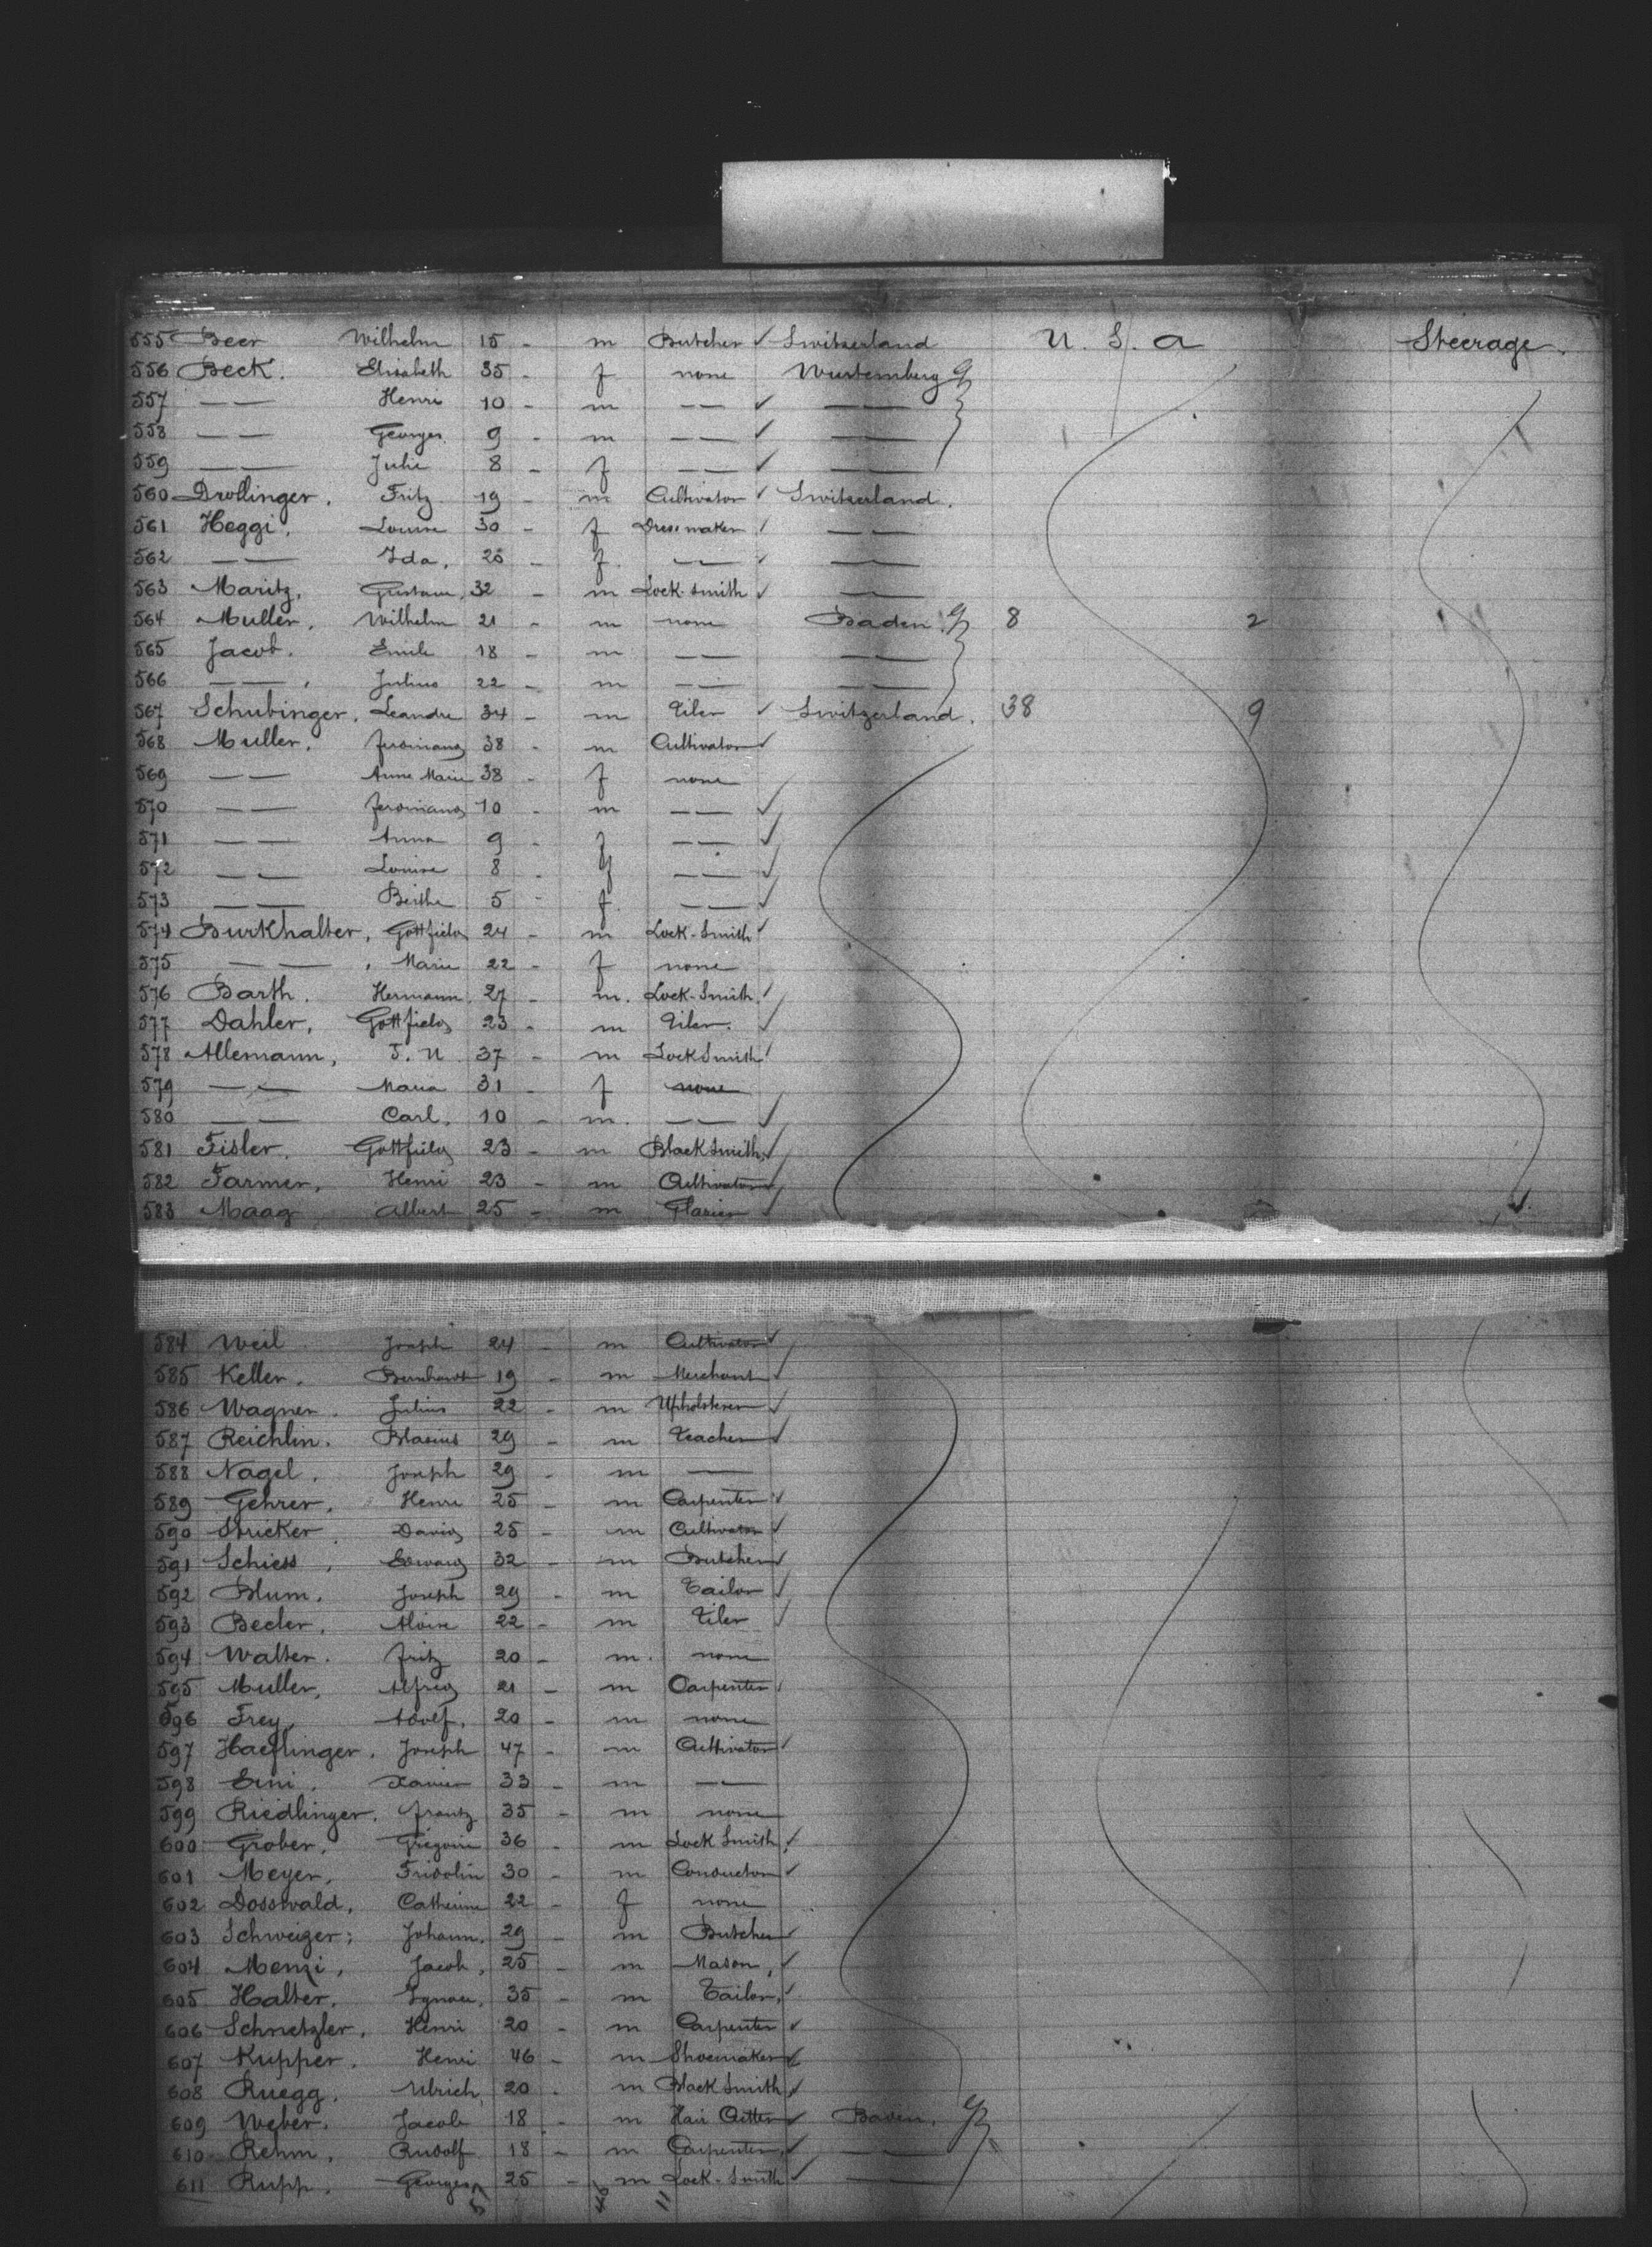 555 Beer Wilhelm 15 - m Butcher ✓ Switzerland U. S. a Steerage.
556 Beck. Elisabeth 35 - f none Wurtemberg G
557 — — Henri 10 - m — — ✓ ——
558 — — Georges. 9 - m — — ✓ ——
559 — — Julie 8 - f — — ✓ ——
560 Drollinger. Fritz 19 - m Cultivator ✓ Switzerland.
561 Heggi. Louise 30 - f Dressmaker ✓ — —
562 — — Ida. 26 - f. — — ✓ ——
563 Maritz. Gustave 32 - m Lock-smith ✓ ——
564 Muller. Wilhelm 21 - m none Baden G 8 2
565 Jacob. Emile 18 - m — — — —
566 — — . Julius 22 - m — — — —
567 Schubinger. Leandre 34 - m Tiler ✓ Switzerland. 38 9
568 Muller. Ferdinand 38 - m Cultivator ✓
569 — — Anne Marie 38 - f none
570 — — Ferdinand 10 - m — — ✓
571 — — Anna 9 - f — — ✓
572 — — Louise 8 - f — — ✓
573 — — Berthe 5 - f. — — ✓
574 Burkhalter, Gottfield 24 - m Lock-Smith ✓
575 — — , Marie 22 - f none
576 Barth. Hermann. 27 - m. Lock-Smith. ✓
577 Dahler, Gottfield 23 - m Tiler. ✓
578 Allemann, J. U 37 - m LockSmith ✓
579 — — Maria 31 - f none
580 — — Carl. 10 - m. — — ✓
581 Fisler. Gottfield 23 - m BlackSmith. ✓
582 Farmer. Henri 23 - m Cultivator ✓
583 Maag Albert 25 - m Glazier ✓
584 Weil Joseph 24 - m Cultivator ✓
585 Keller. Bernhardt 19 - m Merchant ✓
586 Wagner. Julius 22 - m Upholsterer ✓
587 Reichlin. Blasius 29 - m Teacher ✓
588 Nagel. Joseph 29 - m ——
589 Gehrer. Henri 25 - m Carpenter ✓
590 Stricker David 25 - m Cultivator ✓
591 Schiess. Edward 32 - m Butcher ✓
592 Blum. Joseph 29 - m Tailor ✓
593 Becler. Aloise 22 - m Tiler ✓
594 Walter. Fritz 20 - m. none
595 Muller, Alfred 21 - m Carpenter ✓
596 Frey Adolf. 20 - m none
597 Haeflinger. Joseph 47 - m Cultivator ✓
598 Erni. Xavier 33 - m — —
599 Riedlinger. Frantz 35 - m none
600 Grober. Gregoire 36 - m Lock Smith ✓
601 Meyer. Fridolin 30 - m Conductor ✓
602 Dosswald. Catherine 22 - f none
603 Schweizer; Johann. 29 - m Butcher ✓
604 Menzi, Jacob. 25 - m Mason, ✓
605 Halter. Ignace. 35 - m Tailor. ✓
606 Schnetzler, Henri 20 - m Carpenter ✓
607 Kupper. Henri 46 - m Shoemaker ✓
608 Ruegg. Ulrich 20 . m Black Smith ✓
609 Weber. Jacob 18 - m Hair Cutter ✓ Baden. G
610 Rehm. Rudolf 18 - m Carpenter. ✓ — —
611 Rupp. Georges 25 - m Lock-Smith ✓ ——